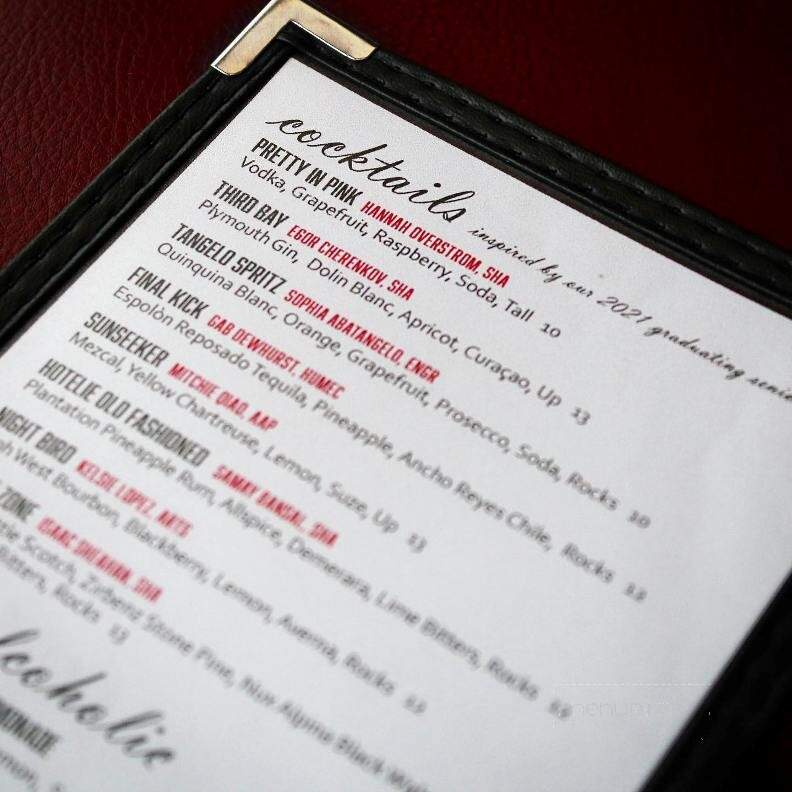 cocktails inspired by our 2021 graduating
PRETTY IN PINK HANNAH OVERSTROM, SHA
Vodka, Grapefruit, Raspberry, Soda, Tall 10
THIRD BAY EGOR CHERENKOV, SHA
Plymouth Gin, Dolin Blanc, Apricot, Curaçao, Up 13
TANGELO SPRITZ SOPHIA ABATANGELO, ENGR
Quinquina Blanc, Orange, Grapefruit, Prosecco, Soda, Rocks 10
FINAL KICK GAB DEWHURST, HUMEC
Espolòn Reposado Tequila, Pineapple, Ancho Reyes Chile, Rocks 12
SUNSEEKER MITCHIE QIAO, AAP
Mezcal, Yellow Chartreuse, Lemon, Suze, Up 13
HOTELIE OLD FASHIONED SAMAY BANSAL, SHA
Plantation Pineapple Rum, Allspice, Demerara, Lime Bitters, Rocks
NIGHT BIRD KELSIE LOPEZ, A&TS
West Bourbon, Blackberry, Lemon, Averna, Rocks 12
ZONE ISAAC SHEARN, SHA
Scotch, Zirbenz Stone Pine, Nux Alpina Black
Bitters, Rocks 13